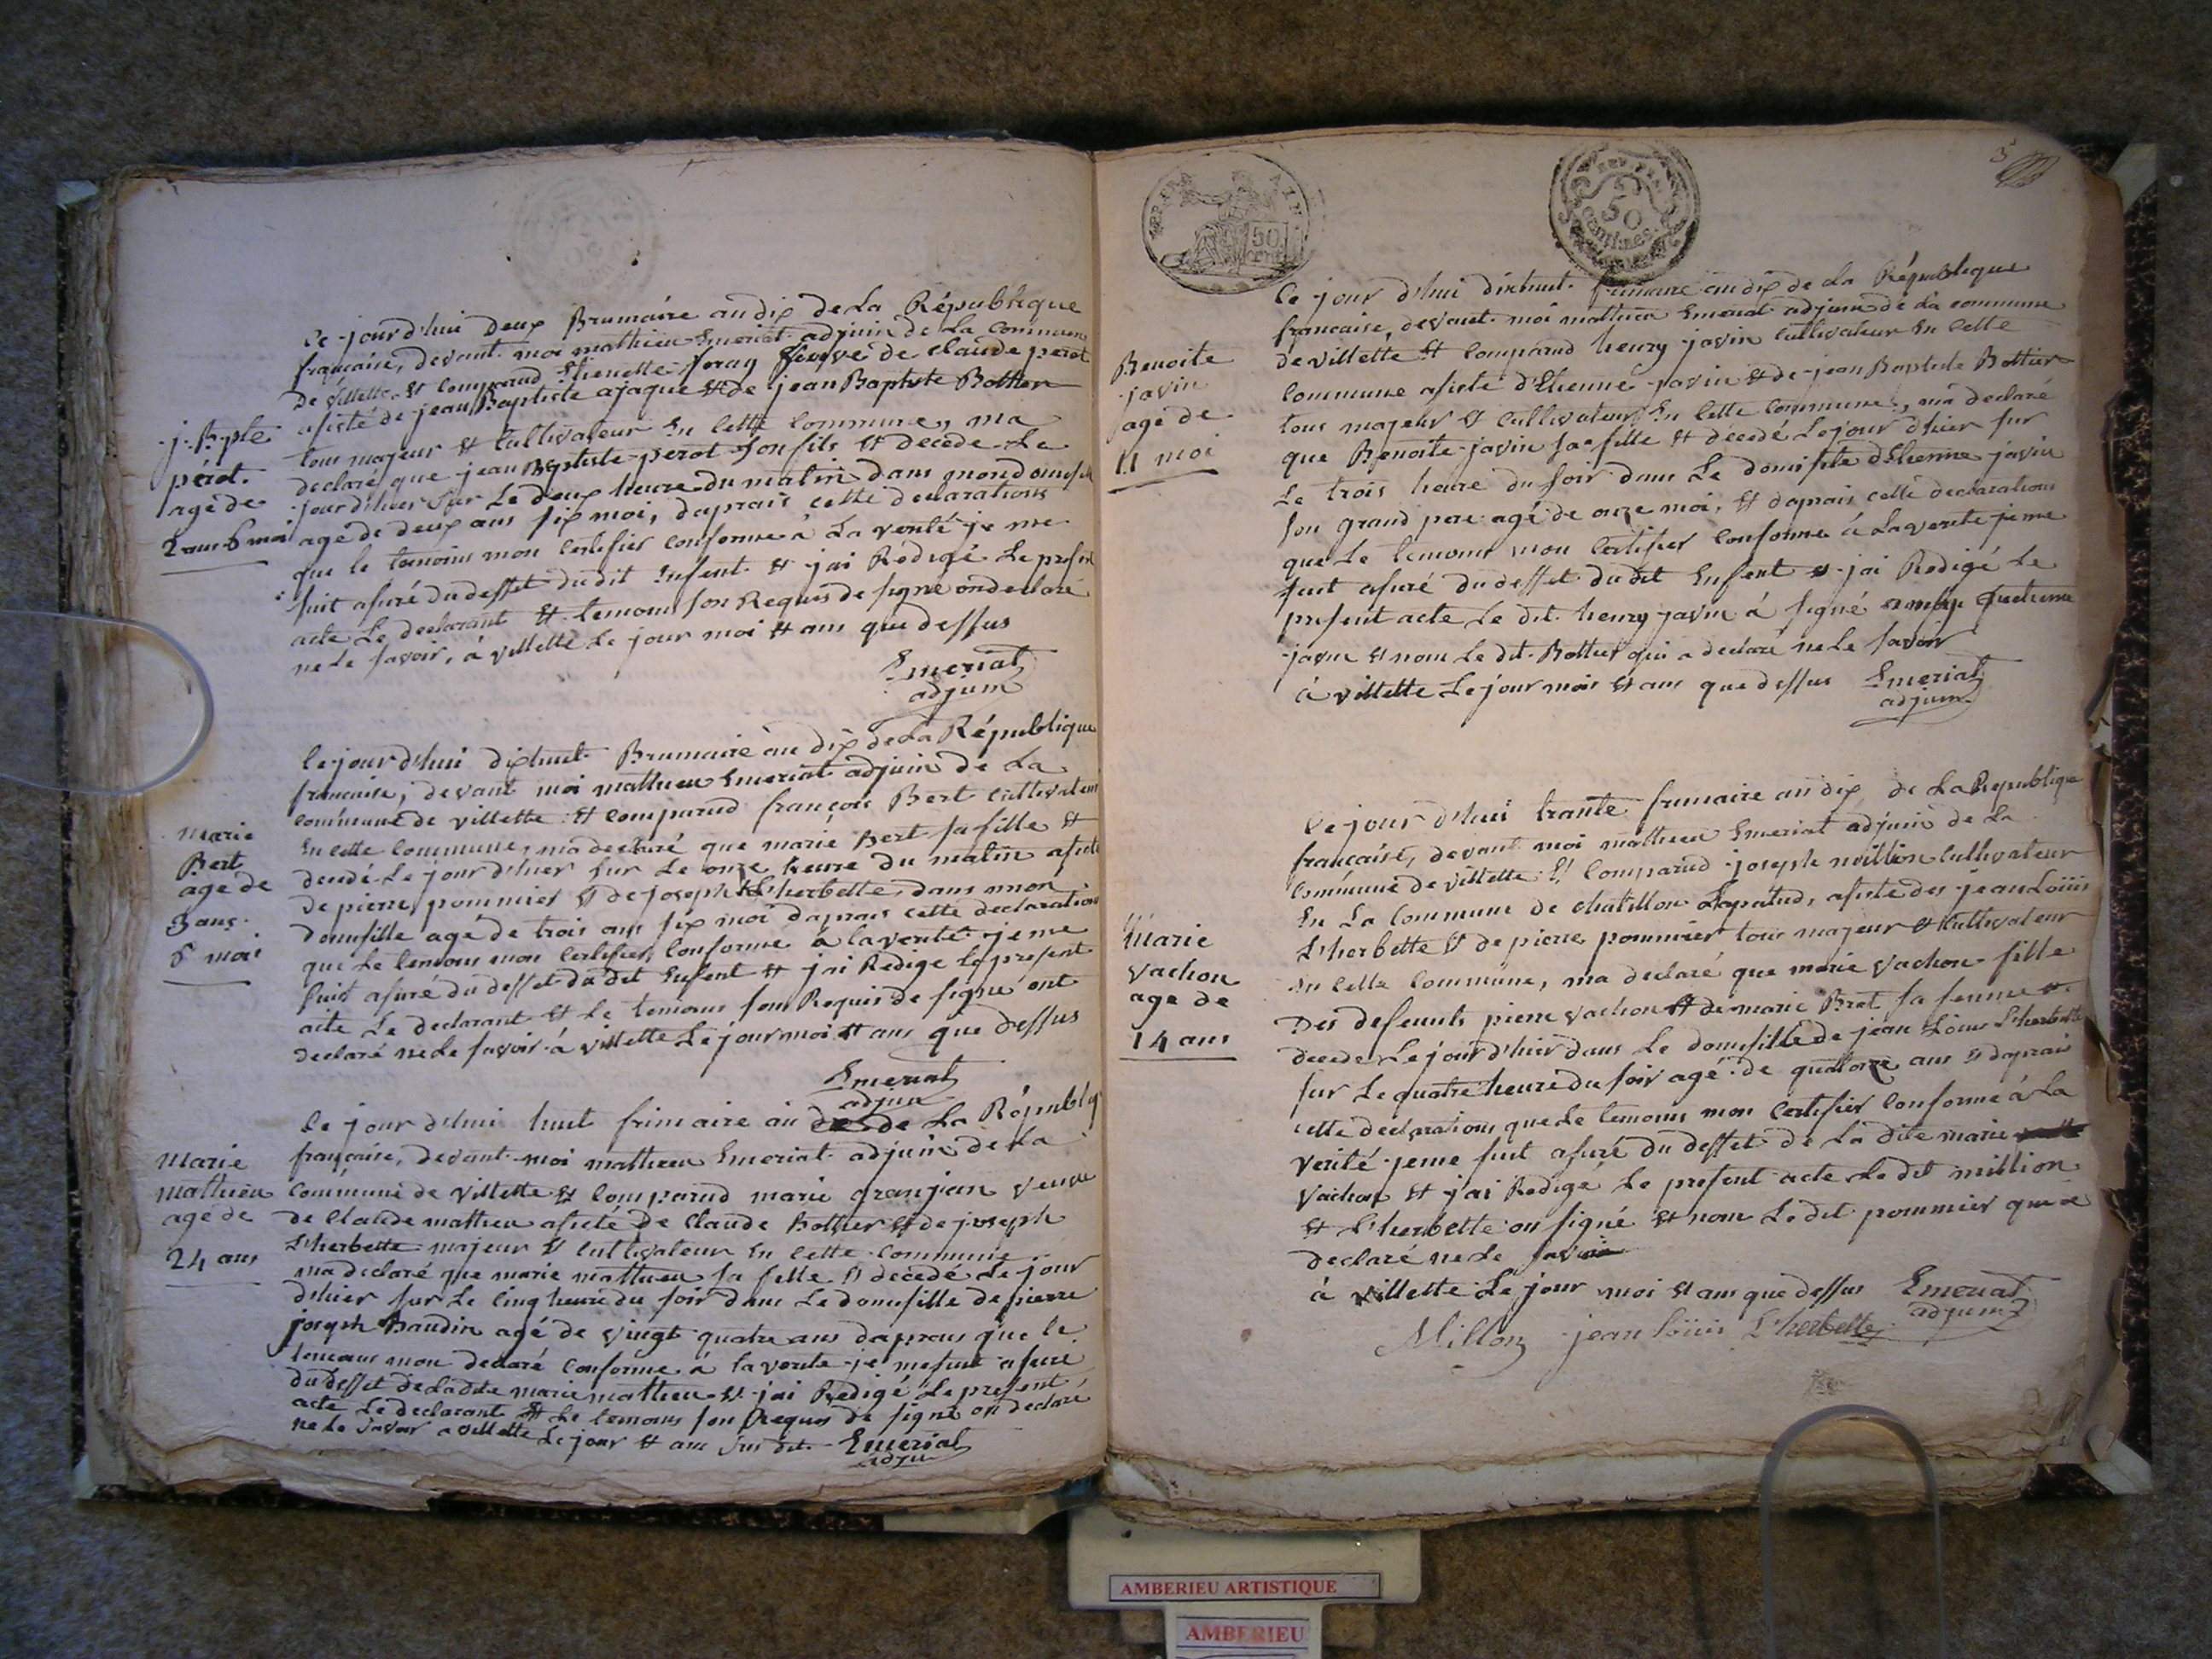 Ce jour d'hui deux Brumaire an dix de La République
française, devant moi mathieu Emeriat adjuin de La Commune
de villette, Et comparud Etienette foray veuve de claude perot
asisté de jean Baptiste ajaque Et de jean Baptiste Bottier
tous majeur Et Cultivateur En cette Commune, ma
declaré que jean Beptiste perot son fils Et décédé Le
jour d'hier sur Le deux heure du matin dans mon domisile
agé de deux ans six moi, daprais cette declarations
que le temoins mon Certifier conforme à La verité je me
suit asuré du desset du dit Enfent Et j'ai Redigé Le presen
acte Le declarant Et temoins son Requis de signé on declaré
ne Le savoir, à villette Le jour moi Et ans que dessus
Emeriat
adjuin
j. Bpte
pérot.
agé de
2 ans 6 moi
Ce jour d'hui dixhuit Brumaire an dix de La République
francaise, devant moi mathieu Emeriat adjuin de La
commune de villette Et comparud françois Bert Cultivateur
En cette Commune, ma declaré que marie Bert sa fille Et
decedé Le jour d'hier sur Le onze heure du matin asisté
de pierre pommier Et de joseph L'herbette, dans mon
domisille agé de trois ans six moi daprais cette declaration
que Le temoins mon Certifier Conforme à la verité je me
suit asuré du desset du dit Enfent Et j'ai Redige Le present
acte Le declarant Et Le temoins son Requis de signé ont
declaré ne Le savoir à villette Le jour moi Et ans que dessus
Emeriat
adjuin
marie
Bert
agé de
3 ans
6 mois
Ce jour d'hui huit frimaire an de La Républiq
française, devant moi mathieu Emeriat adjuin de La
Commune de villette Et Comparud marie granjean veuve
de Claude mathieu asisté de Claude Bottier Et de joseph
L'herbette majeur Et Cultivateur En cette Commune
ma declaré que marie mathieu sa fille Et decedé Le jour
d'hier sur Le cinq heure du soir dans Le domisille de pierre
joseph Baudin agé de vingt quatre ans daprais que le
temoins mon declaré Conforme à la verité je me suit asuré
du desset de Ladite marie mathieu Et j'ai Redigé Le present
acte Le declarant Et Le temoins son Requis de signé on declaré
ne Le savoir a villette Le jour Et ans sus dit. Emeriat
adju
Marie
Mathieu
agé de
24 ans
50
50
centimes
5
Ce jour d'hui dixhuit frimaire an dix de La République
francaise, devant moi mathieu Emeriat adjuin de La commune
de villette Et Comparud henry javin Cultivateur En cette
Commune asisté d'Etienne javin Et de jean Baptiste Bottier
tous majeur Et Cultivateur En cette Commune, ma declaré
que Benoite javin sa fille Et décedé Le jour d'hier sur
Le trois heure du soir dans Le domisile d'Etienne javin
son grand pere agé de onze moi, Et daprais cette declarations
que Le temoins mon Certifier Conforme à La verite je me
suit asuré du desset du dit Enfent Et j'ai Redigé Le
present acte Le dit henry javin à signé
javin Et nom Le dit Bottier qui a declaré ne Le savoir
à villette Le jour mois Et ans que dessus Emeriat
adjuin
Benoite
javin
agé de
11 moi
Ce jour d'hui trante frimaire an dix de La Republique
francaise, devant moi mathieu Emeriat adjuin de La
Commune de villette Et Comparud joseph million Cultivateur
En La Commune de chatillon Lapalud, asisté des jean Loüis
L'herbette Et de pierre pommier tous majeur Et Cultivateur
En cette Commune, ma declaré que marie vachon fille
Des defeunts pierre vachon Et de marie Bret sa femme Et
decede Le jour d'hier dans Le domisille de jean Louis L'herbette
sur Le quatre heure du soir agé de quatorze ans Et daprais
cette declarations que Le temoins mon Certifier Conforme à La
verité je me suit asuré du desset de La dite marie
vachon Et j'ai Redigé Le present acte Le dit million
Et L'herbette on signé Et nom Le dit pommier qui a
declaré ne Le savoir
à villette Le jour moi Et ans que dessus Emeriat
adjuin
Millon jean loüis L'herbette
Marie
vachon
agé de
14 ans
AMBERIEU ARTISTIQUE
AMBERIEU